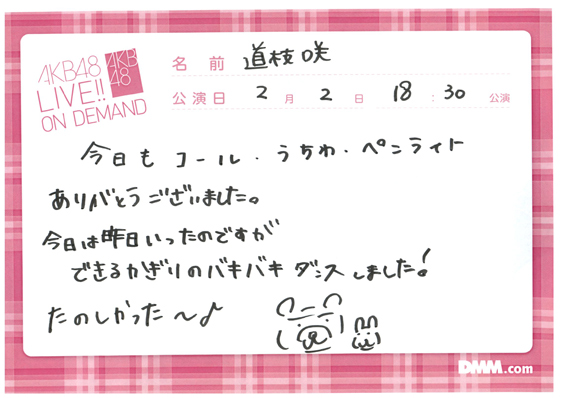 AKB48
LIVE!!
ON DEMAND
AKB
48
名前 道枝咲
公演日 2月2日 18:30公演
今日もコール・うちわ・ペンライト
ありがとうございました。
今日は昨日いったのですが
できるかぎりのバキバキダンスしました!
たのしかった〜♪
DMM.com